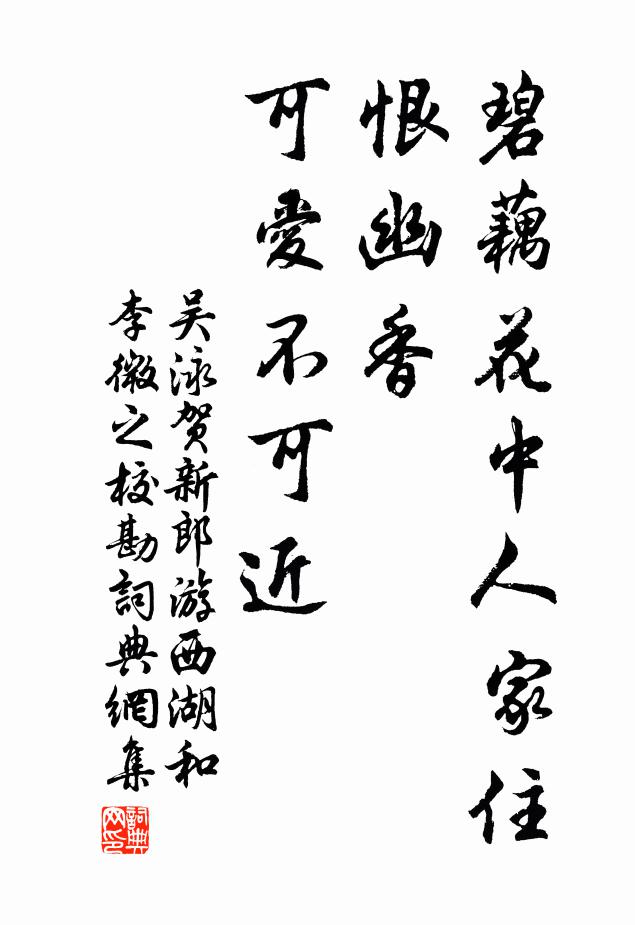 碧藕花中人家住
恨幽香
可愛不可近
吴泳賀新郎游西湖和
李微之校勘詞典網集
詞典
网印